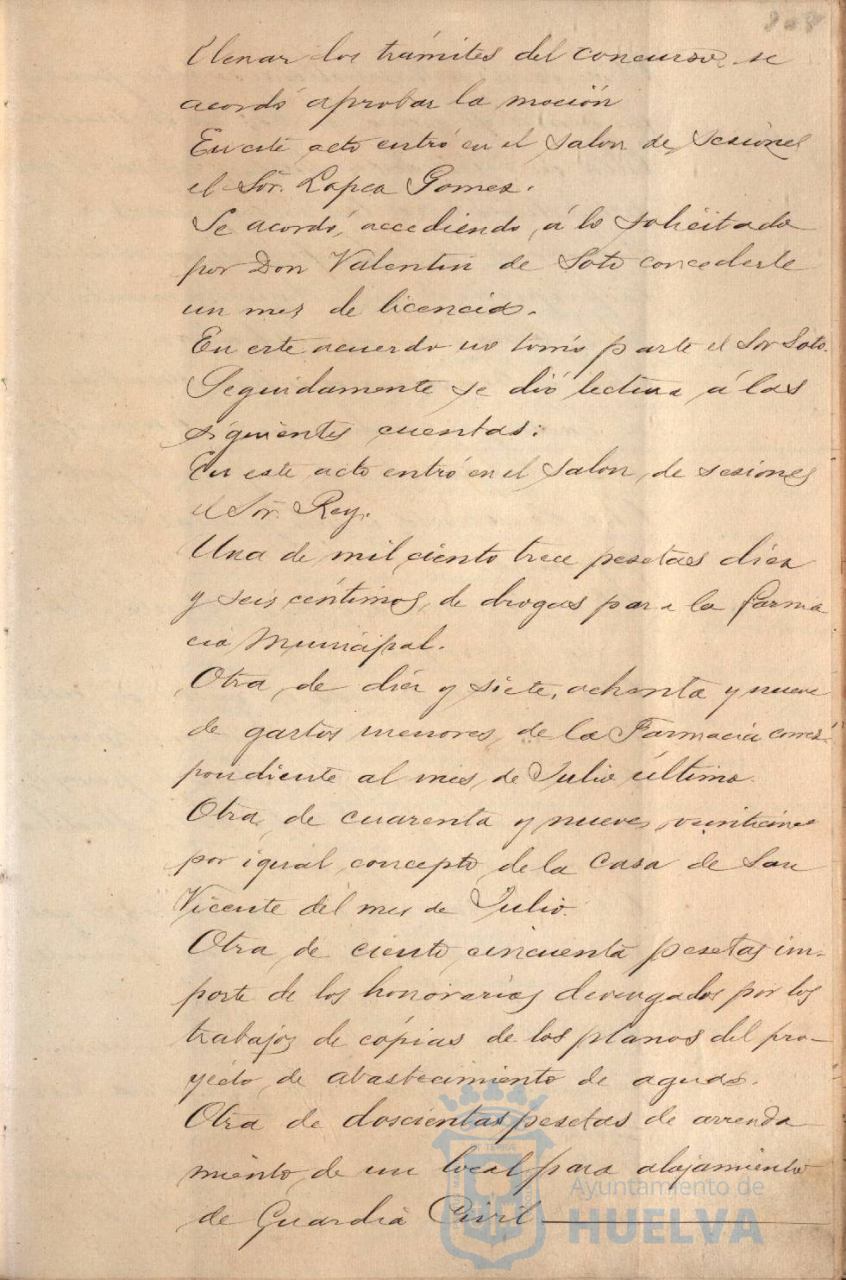 llenar los trámites del concurso, se
acordó aprobar la moción
En este acto entró en el salon de sesiones
el Sor. Lopez Gomez.
Se acordó, accediendo, á lo solicitado
por Don Valentin de Soto concederle
un mes de licencia.
En este acuerdo no tomó parte el Sor Soto.
Seguidamente se dió lectura á las
siguientes cuentas:
En este acto entró en el salon, de sesiones
el Sor. Rey.
Una de mil ciento trece pesetas diez
y seis céntimos, de drogas para la farma
cia Municipal.
Otra, de diez y siete, ochenta y nueve
de gastos menores, de la Farmacia corres-
pondiente al mes, de Julio último.
Otra, de cuarenta y nueve, veinticinco
por igual, concepto, de la Casa de San
Vicente del mes de Julio.
Otra, de ciento, cincuenta pesetas im-
porte de los honorarios devengados por los
trabajos de cópias de los planos del pro-
yecto, de abastecimiento de aguas.
Otra de doscientas pesetas de arrenda
miento, de un local para alojamiento
de Guardia Civil
Ayuntamiento de
HUELVA